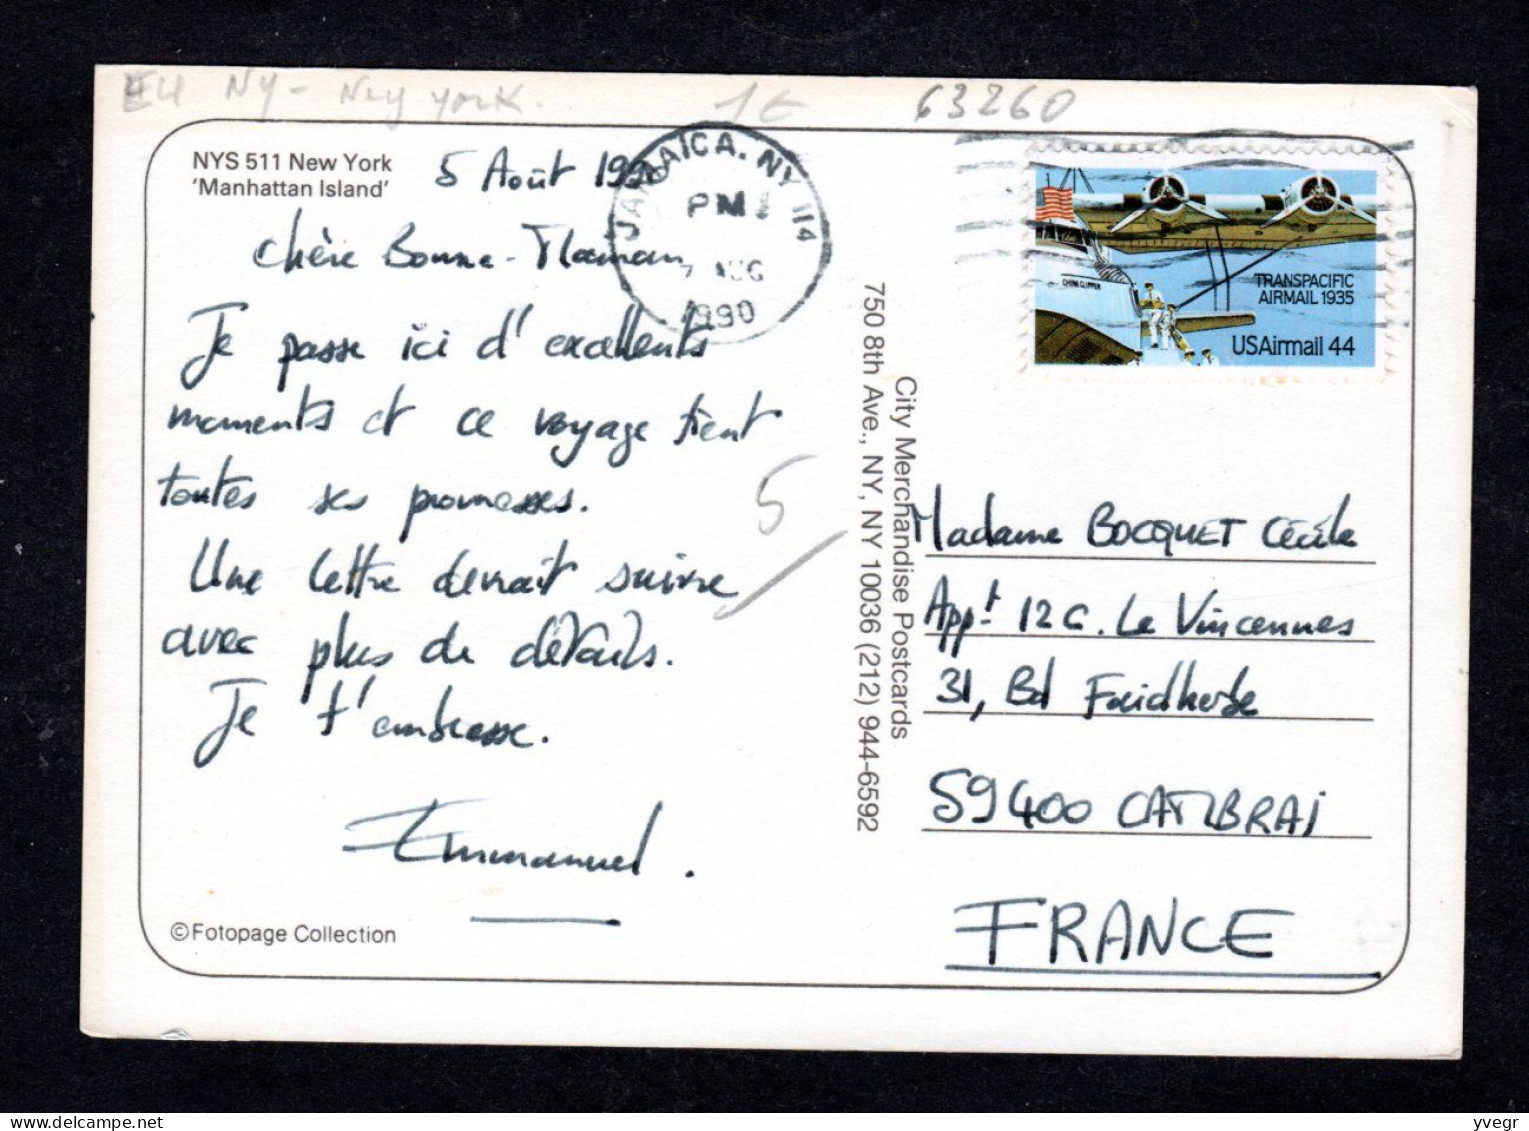 EU NY - New York.
1€
63260
NYS 511 New York
'Manhattan Island'
5 Août 1990
JAMAICA, NY 114
PM
7 AUG
1990
TRANSPACIFIC
AIRMAIL 1935
CHINA CLIPPER
USAirmail 44
Chère Bonne-Maman
Je passe ici d'excellents
moments et ce voyage tient
toutes ses promesses.
Une lettre devrait suivre
avec plus de détails.
Je t'embrasse.
Emmanuel.
5
©Fotopage Collection
City Merchandise Postcards
750 8th Ave., NY, NY 10036 (212) 944-6592
Madame BOCQUET Cécile
Appt 12C. Le Vincennes
31, Bd Faidherbe
59400 CAMBRAI
FRANCE
yvegr